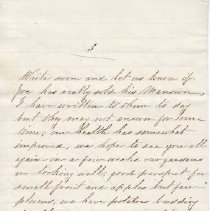 3
Write soon and let us know if
you has really sold his Mansion
I have written to whom to day
but they may not answer for some
time, our Health has somewhat
improved, we hope to see you all
again in a few weeks, our gardens
is looking with good prospect for
small fruit and apples but few
plums, we have potatoes budding